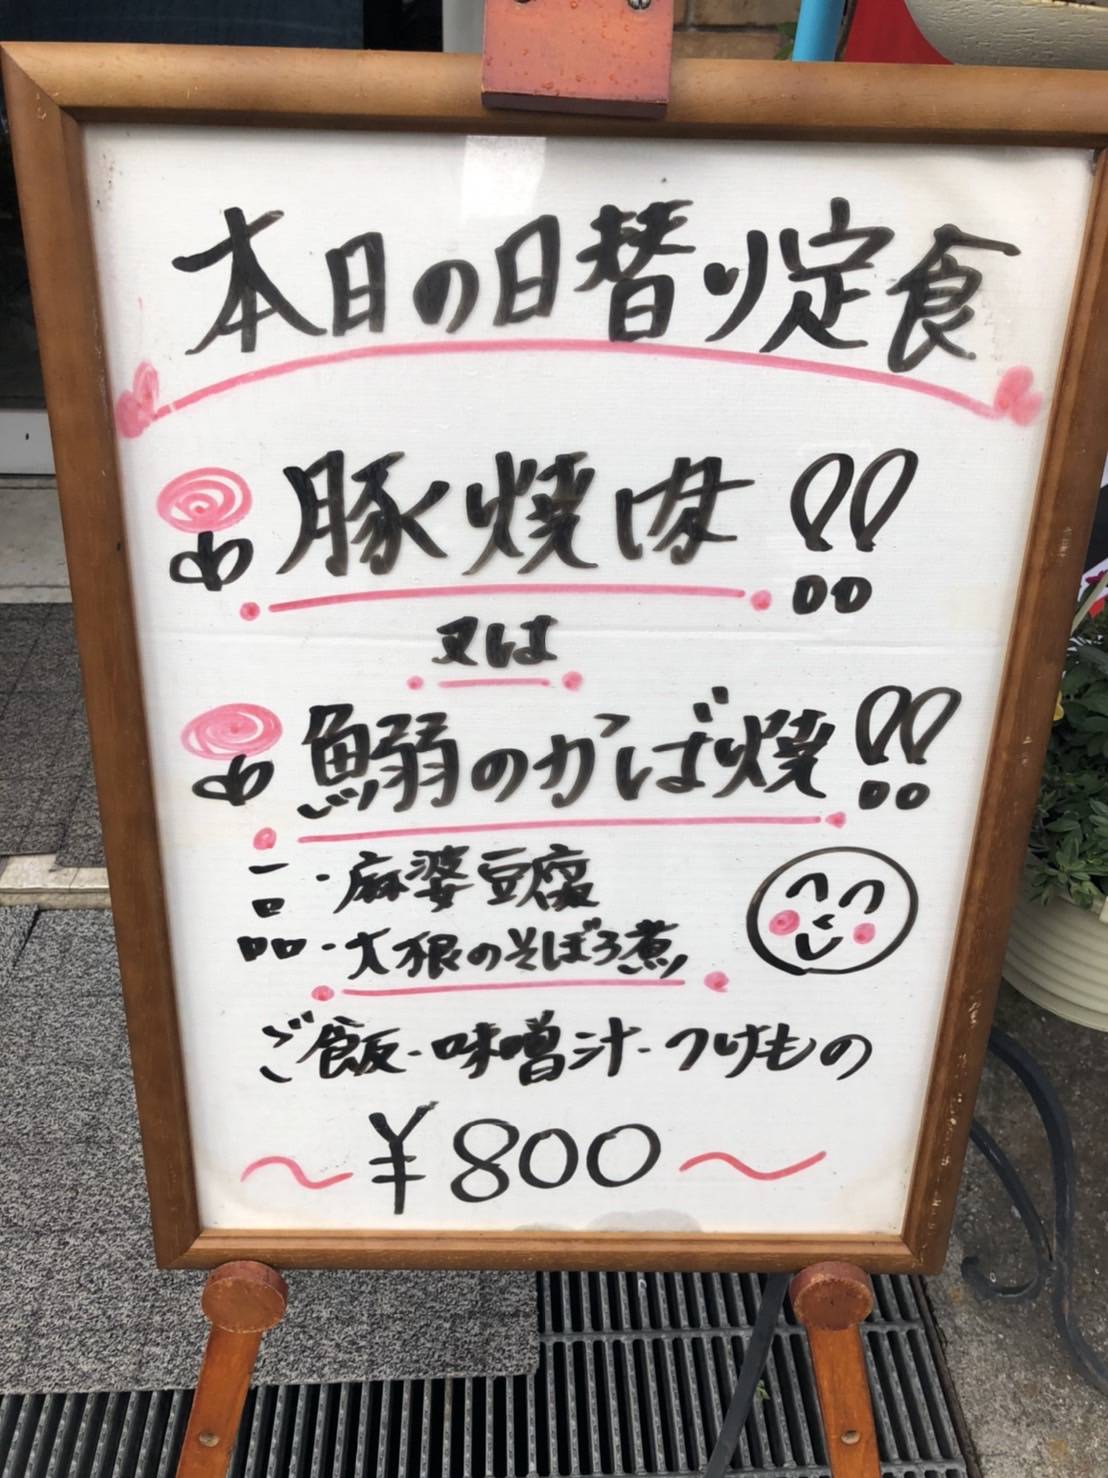 本日の日替り定食
豚焼肉!!
又は
鰯のかば焼!!
一品・麻婆豆腐
・大根のそぼろ煮
ご飯・味噌汁・つけもの
〜¥800〜